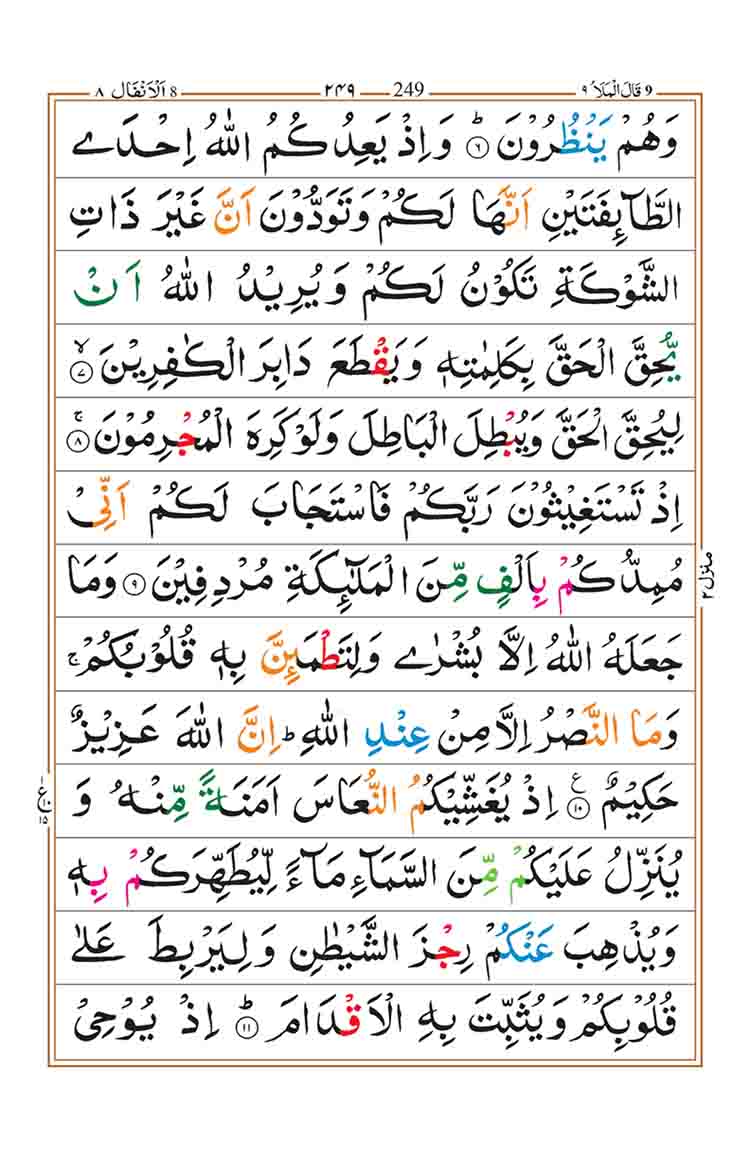 9 قَالَ الْمَلَاُ ٩ 249 ٢٤٩ 8 اَلْاَنْفَال ٨
وَهُمْ يَنْظُرُوْنَ ؕ ﴿٦﴾ وَاِذْ يَعِدُكُمُ اللّٰهُ اِحْدَے
الطَّآئِفَتَيْنِ اَنَّهَا لَكُمْ وَتَوَدُّوْنَ اَنَّ غَيْرَ ذَاتِ
الشَّوْكَةِ تَكُوْنُ لَكُمْ وَيُرِيْدُ اللّٰهُ اَنْ
يُّحِقَّ الْحَقَّ بِكَلِمٰتِهٖ وَيَقْطَعَ دَابِرَ الْكٰفِرِيْنَ ۙ ﴿٧﴾
لِيُحِقَّ الْحَقَّ وَيُبْطِلَ الْبَاطِلَ وَلَوْ كَرِهَ الْمُجْرِمُوْنَ ۚ ﴿٨﴾
اِذْ تَسْتَغِيْثُوْنَ رَبَّكُمْ فَاسْتَجَابَ لَكُمْ اَنِّىْ
مُمِدُّكُمْ بِاَلْفٍ مِّنَ الْمَلٰٓئِكَةِ مُرْدِفِيْنَ ﴿٩﴾ وَمَا
جَعَلَهُ اللّٰهُ اِلَّا بُشْرٰے وَلِتَطْمَئِنَّ بِهٖ قُلُوْبُكُمْ ۚ
وَمَا النَّصْرُ اِلَّا مِنْ عِنْدِ اللّٰهِ ؕ اِنَّ اللّٰهَ عَزِيْزٌ
حَكِيْمٌ ﴿١٠﴾ ع اِذْ يُغَشِّيْكُمُ النُّعَاسَ اَمَنَةً مِّنْهُ وَ
يُنَزِّلُ عَلَيْكُمْ مِّنَ السَّمَآءِ مَآءً لِّيُطَهِّرَكُمْ بِهٖ
وَيُذْهِبَ عَنْكُمْ رِجْزَ الشَّيْطٰنِ وَلِيَرْبِطَ عَلٰے
قُلُوْبِكُمْ وَيُثَبِّتَ بِهِ الْاَقْدَامَ ؕ ﴿١١﴾ اِذْ يُوْحِىْ
منزل ٢
ع ١٥